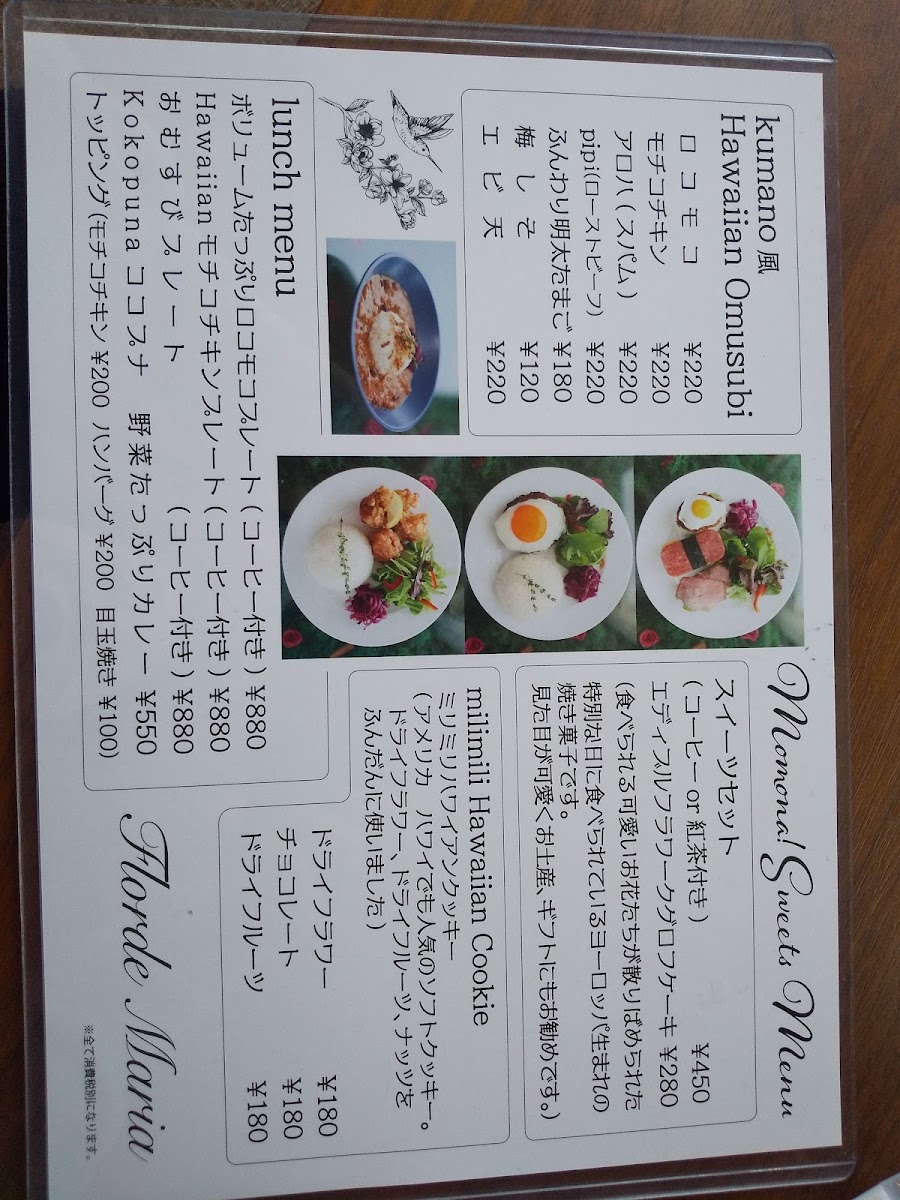 kumano 風
Hawaiian Omusubi
ロコモコ ¥220
モチコチキン ¥220
アロハ(スパム) ¥220
pipi(ローストビーフ) ¥220
ふんわり明太たまご ¥180
梅しそ ¥120
エビ天 ¥220
lunch menu
ボリュームたっぷりロコモコプレート(コーヒー付き)¥880
Hawaiian モチコチキンプレート(コーヒー付き)¥880
おむすびプレート (コーヒー付き)¥880
Kokopuna ココプナ 野菜たっぷりカレー ¥550
トッピング(モチコチキン ¥200 ハンバーグ ¥200 目玉焼き ¥100)
Momona! Sweets Menu
スイーツセット
(コーヒー or 紅茶付き) ¥450
エディスルフラワークグロフケーキ ¥280
(食べられる可愛いお花たちが散りばめられた
特別な日に食べられているヨーロッパ生まれの
焼き菓子です。
見た目が可愛くお土産、ギフトにもお勧めです。)
milimili Hawaiian Cookie
ミリミリハワイアンクッキー
(アメリカ ハワイでも人気のソフトクッキー。
ドライフラワー、ドライフルーツ、ナッツを
ふんだんに使いました)
ドライフラワー ¥180
チョコレート ¥180
ドライフルーツ ¥180
Florde Maria
※全て消費税別になります。